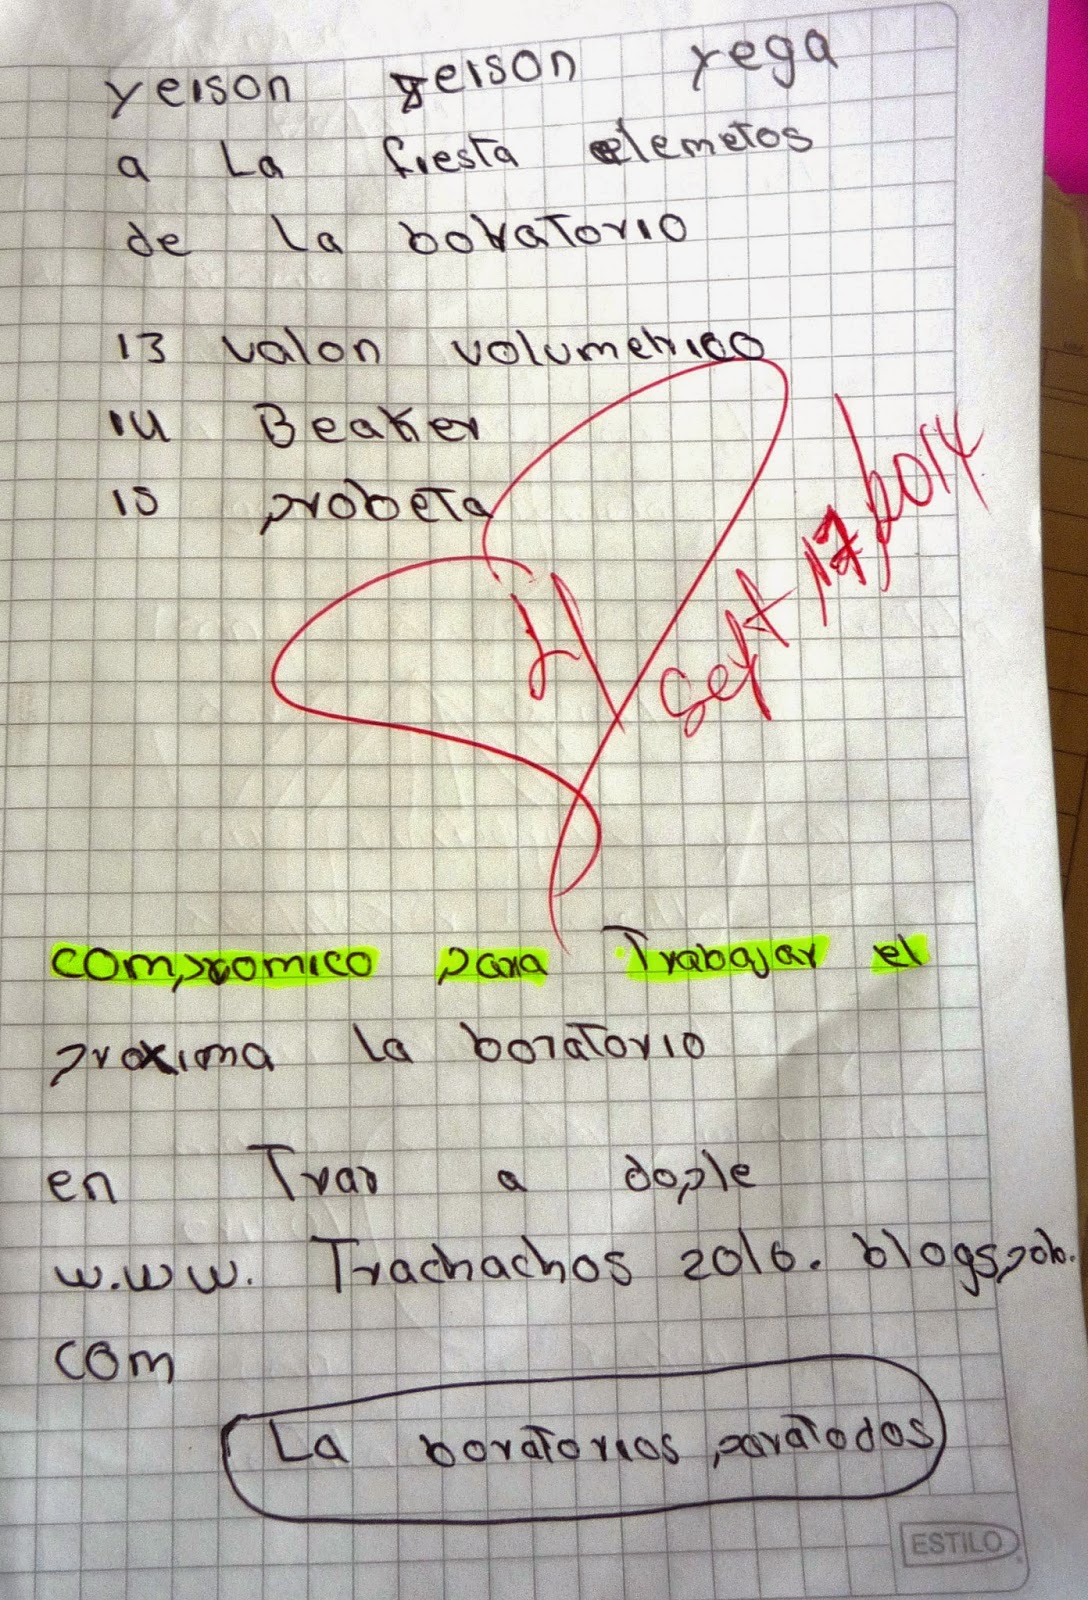 yeison yeison rega
a La fiesta elemetos
de la boratorio
13 valon volumetrico
14 Beaker
15 probeta
Sept 17/2014
compromico para Trabajar el
proxima la boratorio
en Trar a dople
w.ww. Trachachos 2016. blogspob.
com
La boratorios paratodos
ESTILO